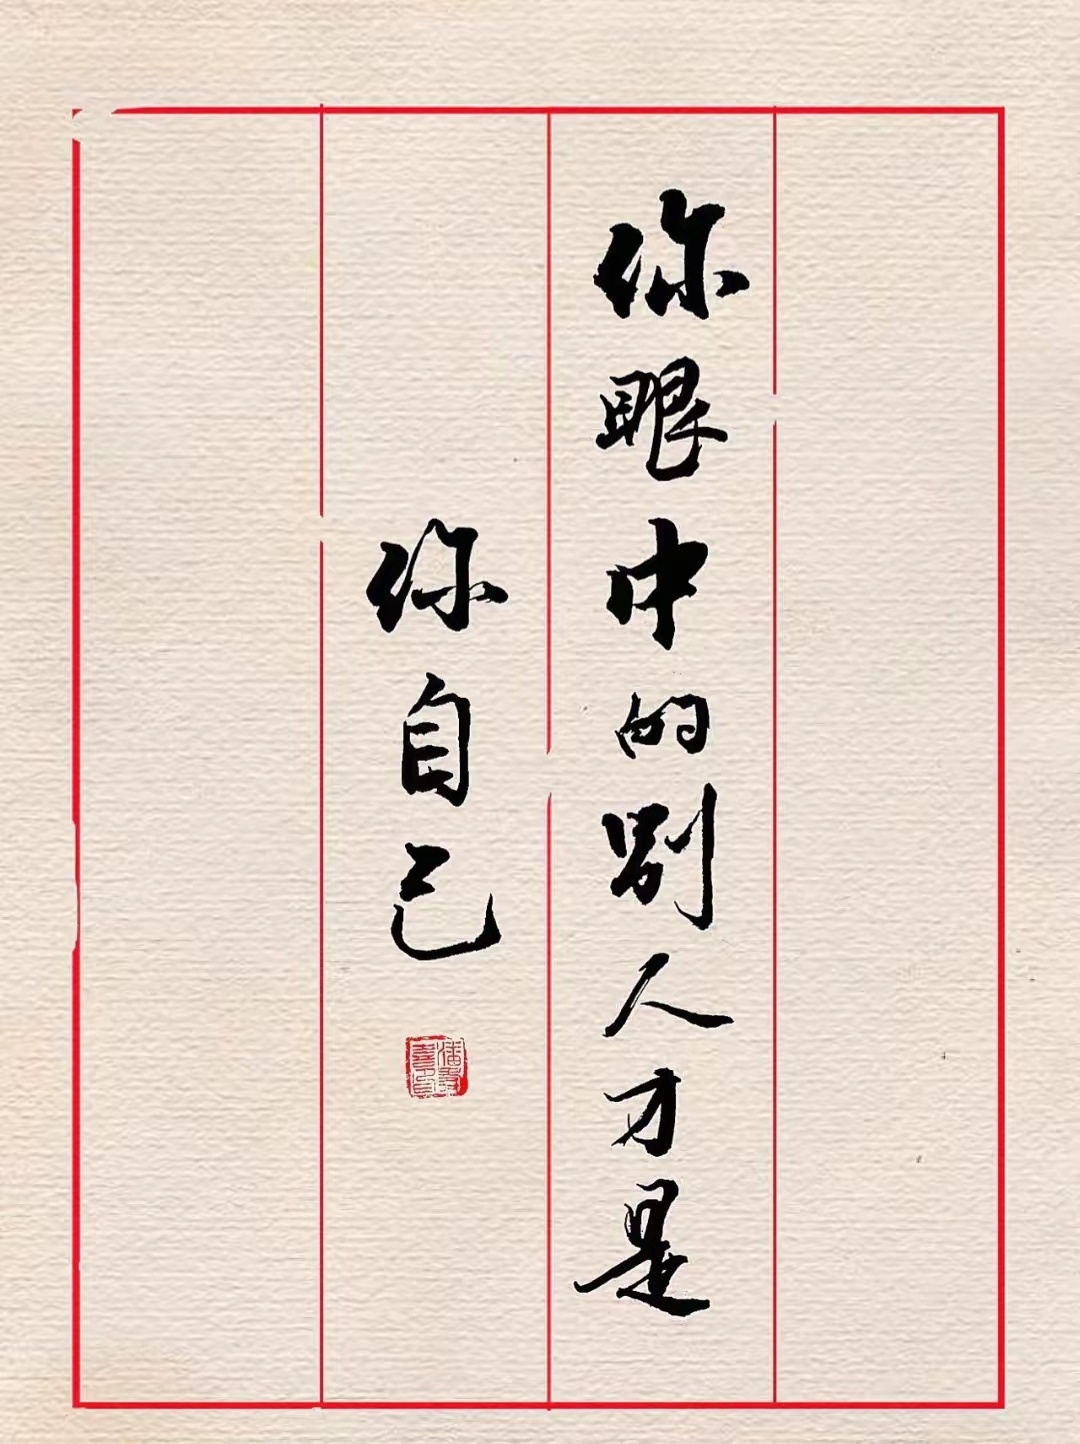 你眼中的别人才是
你自己